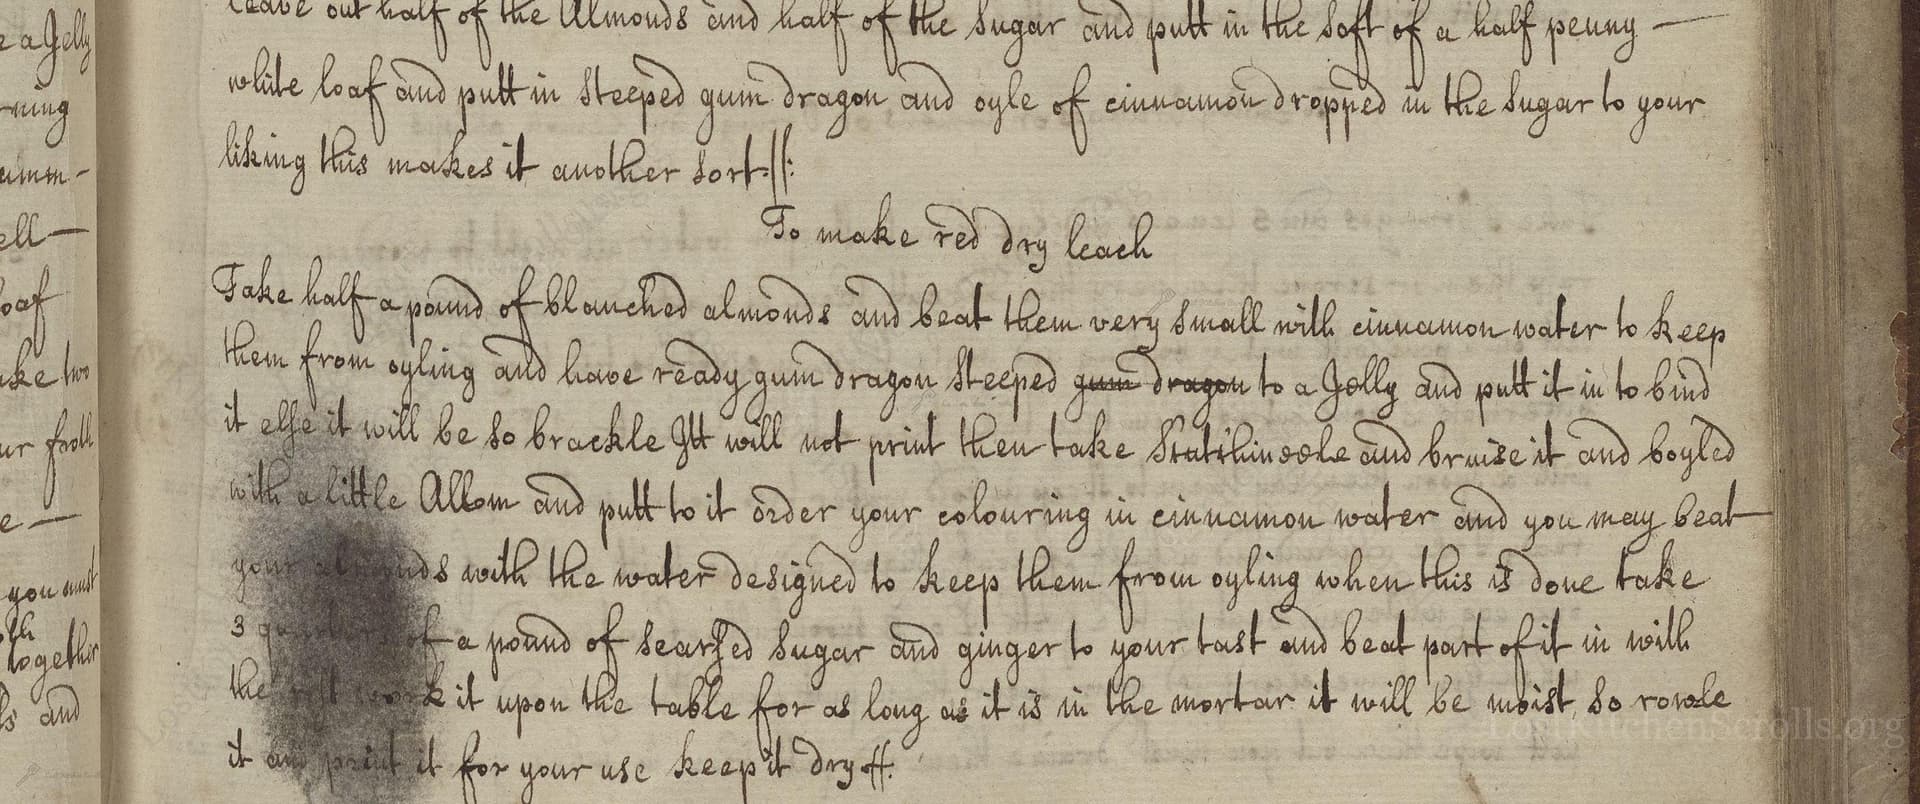 leave out half of the Almonds and half of the sugar and putt in the soft of a half penny —
white loaf and putt in steeped gum dragon and oyle of cinnamon dropped in the sugar to your
liking this makes it another sort
To make red dry leach
Take half a pound of blanched almonds and beat them very small with cinnamon water to keep
them from oyling and have ready gum dragon steeped gum dragon to a Jelly and putt it in to bind
it else it will be so brackle Itt will not print then take and bruise it and boyled
with a little Allom and putt to it order your colouring in cinnamon water and you may beat
your almonds with the water designed to keep them from oyling when this is done take
3 quarters of a pound of searsed sugar and ginger to your tast and beat part of it in with
the rest work it upon the table for as long as it is in the mortar it will be moist so rowle
it and print it for your use keep it dry
e a Jelly
ning
umm-
ell —
loaf
ake two
ur froth
e —
you must
together
ls and
LostKitchenScrolls.org